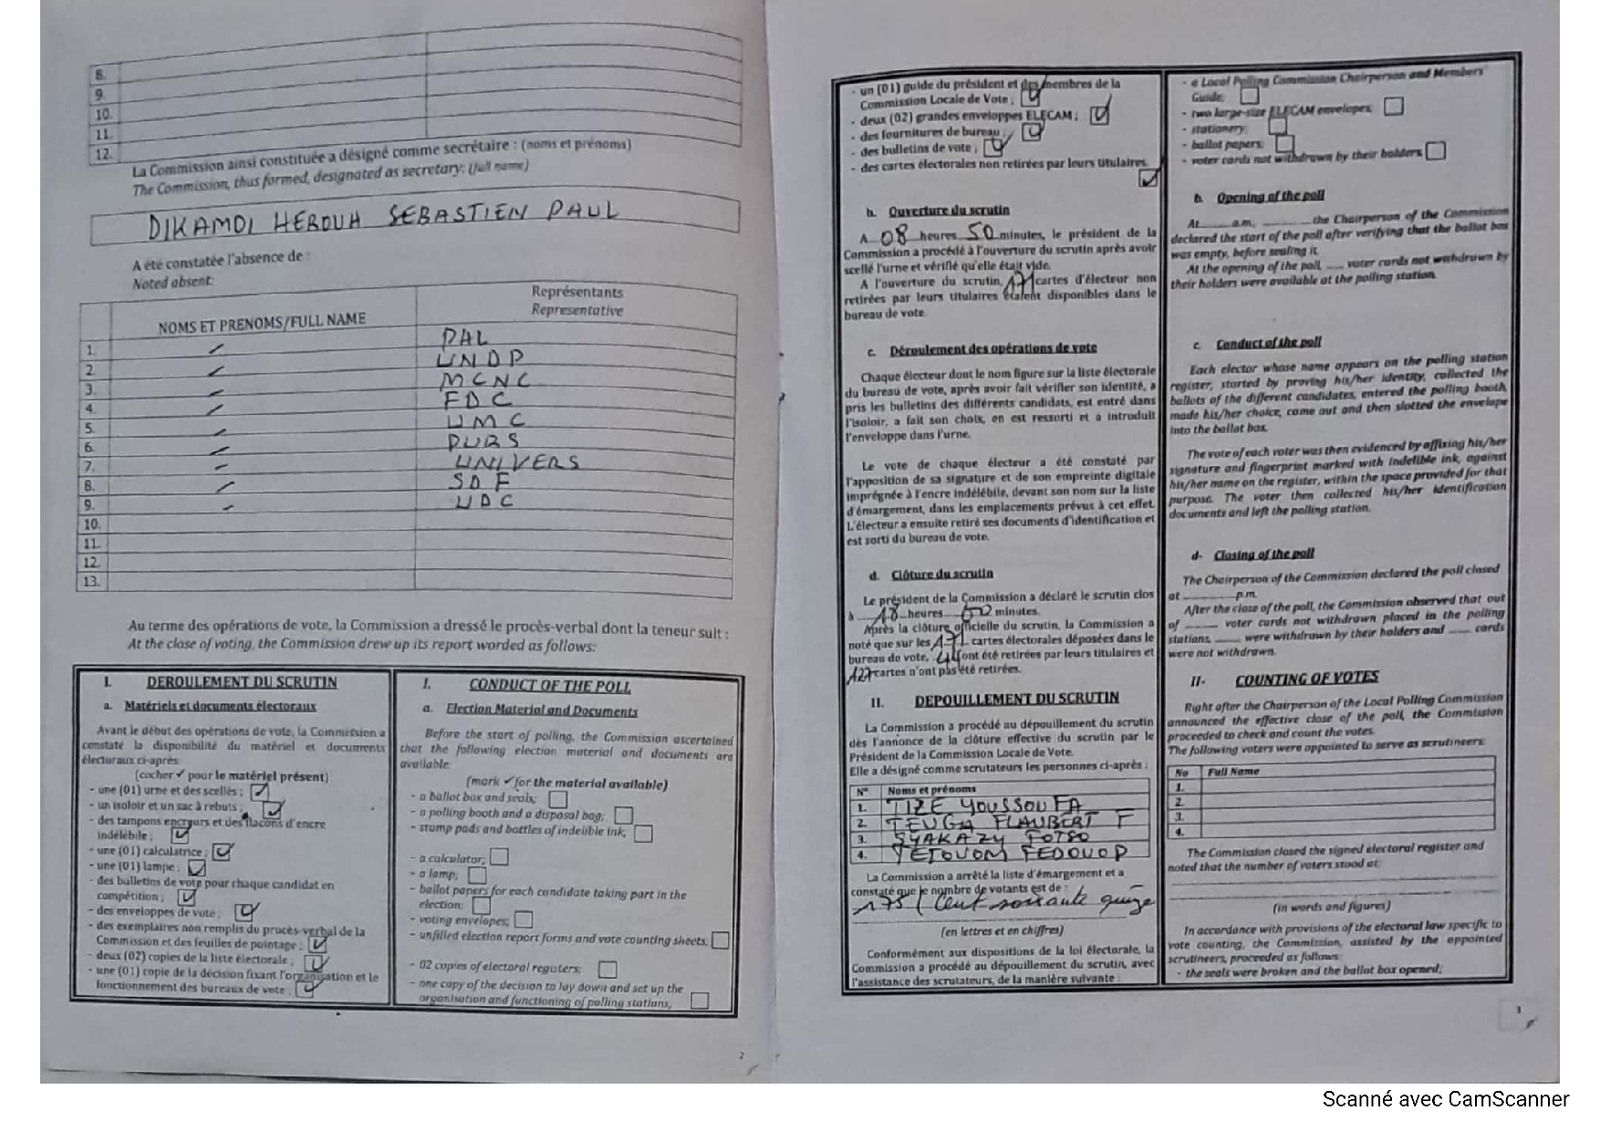 8.
9.
10.
11.
12.
La Commission ainsi constituée a désigné comme secrétaire : (noms et prénoms)
The Commission, thus formed, designated as secretary: (full name)
DIKAMDI HEROUH SEBASTIEN PAUL
A été constatée l'absence de :
Noted absent:
NOMS ET PRENOMS/FULL NAME
Représentants
Representative
1. PAL
2. UNDP
3. MCNC
4. FDC
5. UMC
6. PURS
7. UNIVERS
8. SDF
9. UDC
10.
11.
12.
13.
Au terme des opérations de vote, la Commission a dressé le procès-verbal dont la teneur suit :
At the close of voting, the Commission drew up its report worded as follows:
I. DEROULEMENT DU SCRUTIN
a. Matériels et documents électoraux
Avant le début des opérations de vote, la Commission a
constaté la disponibilité du matériel et documents
électoraux ci-après
(cocher ✓ pour le matériel présent)
- une (01) urne et des scellés ;
- un isoloir et un sac à rebuts ;
- des tampons encreurs et des flacons d'encre
indélébile ;
- une (01) calculatrice ;
- une (01) lampe ;
- des bulletins de vote pour chaque candidat en
compétition ;
- des enveloppes de vote ;
- des exemplaires non remplis du procès-verbal de la
Commission et des feuilles de pointage ;
- deux (02) copies de la liste électorale ;
- une (01) copie de la décision fixant l'organisation et le
fonctionnement des bureaux de vote ;
I. CONDUCT OF THE POLL
a. Election Material and Documents
Before the start of polling, the Commission ascertained
that the following election material and documents are
available:
(mark ✓ for the material available)
- a ballot box and seals;
- a polling booth and a disposal bag;
- stamp pads and bottles of indelible ink;
- a calculator;
- a lamp;
- ballot papers for each candidate taking part in the
election;
- voting envelopes;
- unfilled election report forms and vote counting sheets;
- 02 copies of electoral registers;
- one copy of the decision to lay down and set up the
organisation and functioning of polling stations;
2
- un (01) guide du président et des membres de la
Commission Locale de Vote ;
- deux (02) grandes enveloppes ELECAM ;
- des fournitures de bureau ;
- des bulletins de vote ;
- des cartes électorales non retirées par leurs titulaires.
b. Ouverture du scrutin
A 08 heures 50 minutes, le président de la
Commission a procédé à l'ouverture du scrutin après avoir
scellé l'urne et vérifié qu'elle était vide.
A l'ouverture du scrutin, 171 cartes d'électeur non
retirées par leurs titulaires étaient disponibles dans le
bureau de vote.
c. Déroulement des opérations de vote
Chaque électeur dont le nom figure sur la liste électorale
du bureau de vote, après avoir fait vérifier son identité, a
pris les bulletins des différents candidats, est entré dans
l'isoloir, a fait son choix, en est ressorti et a introduit
l'enveloppe dans l'urne.
Le vote de chaque électeur a été constaté par
l'apposition de sa signature et de son empreinte digitale
imprégnée à l'encre indélébile, devant son nom sur la liste
d'émargement, dans les emplacements prévus à cet effet.
L'électeur a ensuite retiré ses documents d'identification et
est sorti du bureau de vote.
d. Clôture du scrutin
Le président de la Commission a déclaré le scrutin clos
à 18 heures minutes.
Après la clôture officielle du scrutin, la Commission a
noté que sur les 171 cartes électorales déposées dans le
bureau de vote, 44 ont été retirées par leurs titulaires et
127 cartes n'ont pas été retirées.
II. DEPOUILLEMENT DU SCRUTIN
La Commission a procédé au dépouillement du scrutin
dès l'annonce de la clôture effective du scrutin par le
Président de la Commission Locale de Vote.
Elle a désigné comme scrutateurs les personnes ci-après :
N° Noms et prénoms
1. TIZE YOUSSOUFA
2. TEUGA FLAUBERT F
3. SYAKAZY FOTSO
4.
La Commission a arrêté la liste d'émargement et a
constaté que le nombre de votants est de :
175 ( Cent soixante quinze
(en lettres et en chiffres)
Conformément aux dispositions de la loi électorale, la
Commission a procédé au dépouillement du scrutin, avec
l'assistance des scrutateurs, de la manière suivante :
- a Local Polling Commission Chairperson and Members'
Guide;
- two large-size ELECAM envelopes;
- stationery;
- ballot papers;
- voter cards not withdrawn by their holders
b. Opening of the poll
At a.m, the Chairperson of the Commission
declared the start of the poll after verifying that the ballot box
was empty, before sealing it.
At the opening of the poll, voter cards not withdrawn by
their holders were available at the polling station.
c. Conduct of the poll
Each elector whose name appears on the polling station
register, started by proving his/her identity, collected the
ballots of the different candidates, entered the polling booth,
made his/her choice, came out and then slotted the envelope
into the ballot box.
The vote of each voter was then evidenced by affixing his/her
signature and fingerprint marked with indelible ink, against
his/her name on the register, within the space provided for that
purpose. The voter then collected his/her identification
documents and left the polling station.
d- Closing of the poll
The Chairperson of the Commission declared the poll closed
at p.m.
After the close of the poll, the Commission observed that out
of voter cards not withdrawn placed in the polling
stations, were withdrawn by their holders and cards
were not withdrawn.
II- COUNTING OF VOTES
Right after the Chairperson of the Local Polling Commission
announced the effective close of the poll, the Commission
proceeded to check and count the votes.
The following voters were appointed to serve as scrutineers:
No Full Name
1.
2.
3.
4.
The Commission closed the signed electoral register and
noted that the number of voters stood at:
(in words and figures)
In accordance with provisions of the electoral law specific to
vote counting, the Commission, assisted by the appointed
scrutineers, proceeded as follows:
- the seals were broken and the ballot box opened;
3
Scanné avec CamScanner